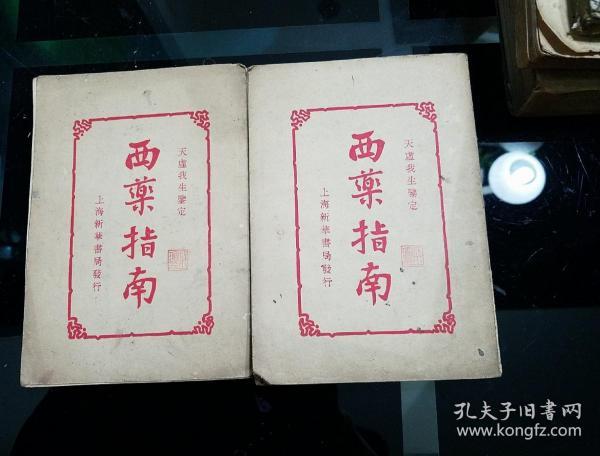 天虛我生鑒定
西藥指南
上海新華書局發行
天虛我生鑒定
西藥指南
上海新華書局發行
孔夫子旧书网
www.kongfz.com